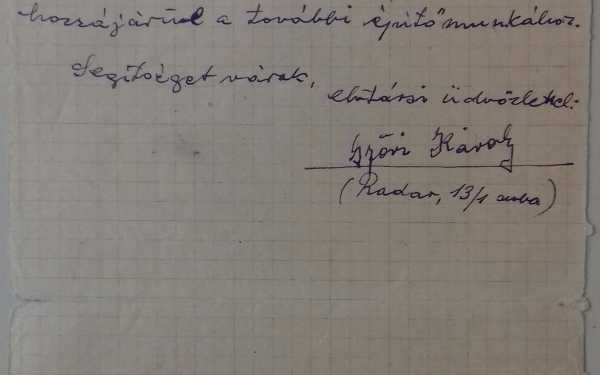 hozzájárul a további építőmunkához.
Segítséget várok,
elvtársi üdvözlettel:
Győri Károly
(Radar, 13/1 szoba)